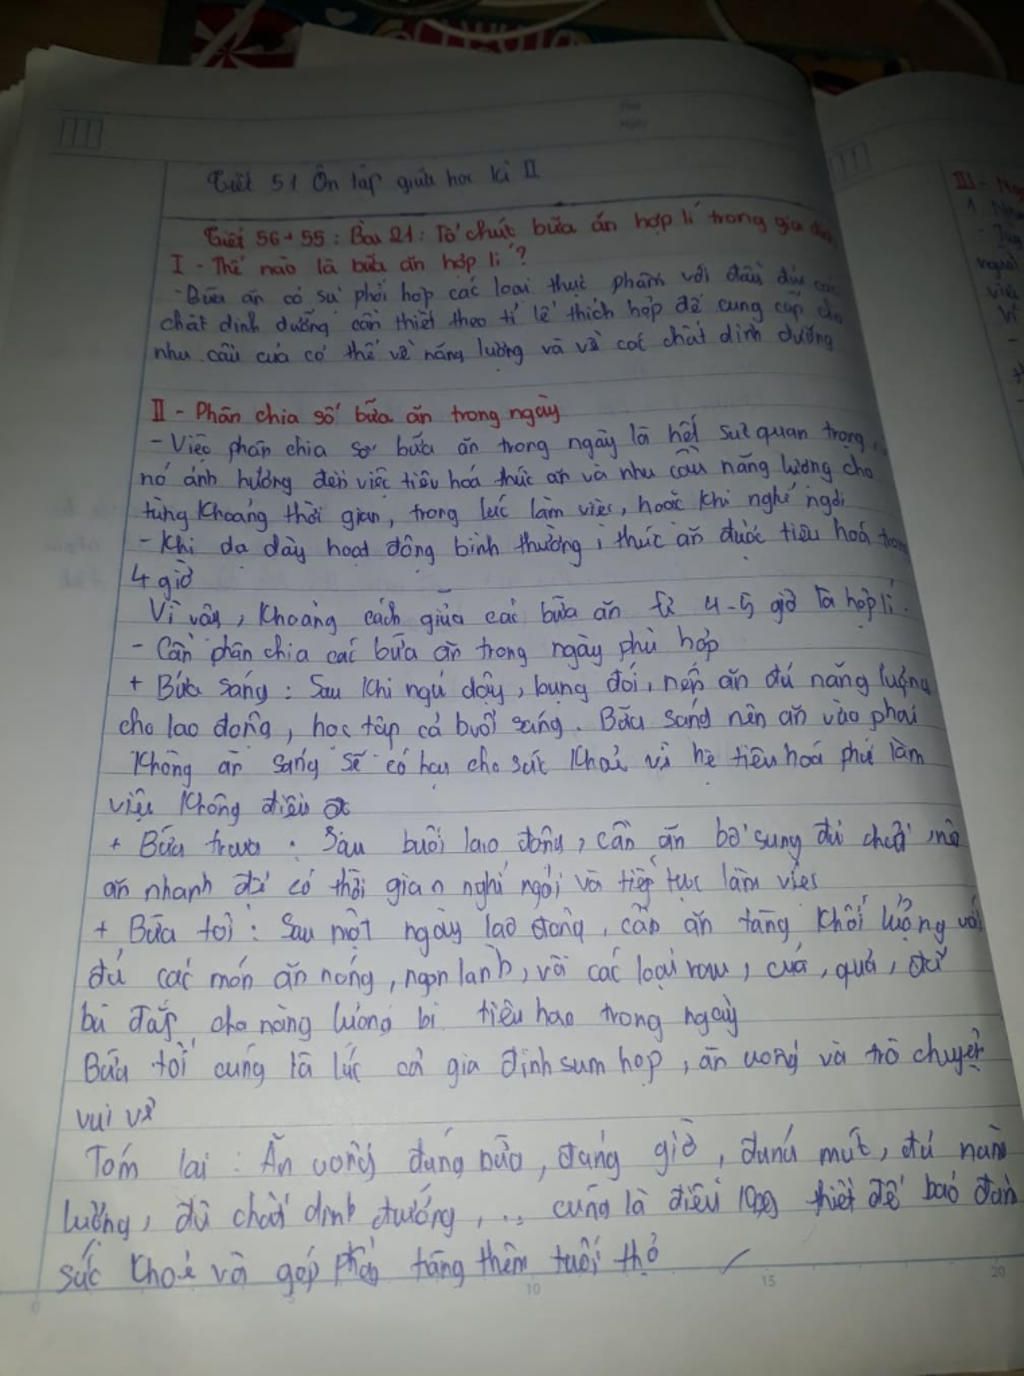 Tiết 51 Ôn tập giữa học kì II
Tiết 56+55: Bài 21: Tổ chức bữa ăn hợp lí trong gia đình
I - Thế nào là bữa ăn hợp lí?
- Bữa ăn có sự phối hợp các loại thực phẩm với đầy đủ các
chất dinh dưỡng cần thiết theo tỉ lệ thích hợp để cung cấp cho
nhu cầu của cơ thể về năng lượng và về các chất dinh dưỡng
II - Phân chia số bữa ăn trong ngày
- Việc phân chia số bữa ăn trong ngày là hết sức quan trọng,
nó ảnh hưởng đến việc tiêu hoá thức ăn và nhu cầu năng lượng cho
từng khoảng thời gian, trong lúc làm việc, hoặc khi nghỉ ngơi
- Khi dạ dày hoạt động bình thường, thức ăn được tiêu hoá trong
4 giờ
Vì vậy, khoảng cách giữa các bữa ăn từ 4-5 giờ là hợp lí.
- Cần phân chia các bữa ăn trong ngày phù hợp
+ Bữa sáng: Sau khi ngủ dậy, bụng đói, nên ăn đủ năng lượng
cho lao động, học tập cả buổi sáng. Bữa sáng nên ăn vừa phải
Không ăn sáng sẽ có hại cho sức khoẻ vì hệ tiêu hoá phải làm
việc không điều độ
+ Bữa trưa: Sau buổi lao động, cần ăn bổ sung đủ chất, nên
ăn nhanh để có thời gian nghỉ ngơi và tiếp tục làm việc
+ Bữa tối: Sau một ngày lao động, cần ăn tăng khối lượng với
đủ các món ăn nóng, ngon lành, và các loại rau, củ, quả, để
bù đắp cho năng lượng bị tiêu hao trong ngày
Bữa tối cũng là lúc cả gia đình sum họp, ăn uống và trò chuyện
vui vẻ
Tóm lại: Ăn uống đúng bữa, đúng giờ, đúng mức, đủ năng
lượng, đủ chất dinh dưỡng, ... cũng là điều thiết để bảo đảm
sức khoẻ và góp phần tăng thêm tuổi thọ
III - Ng
10
15
20